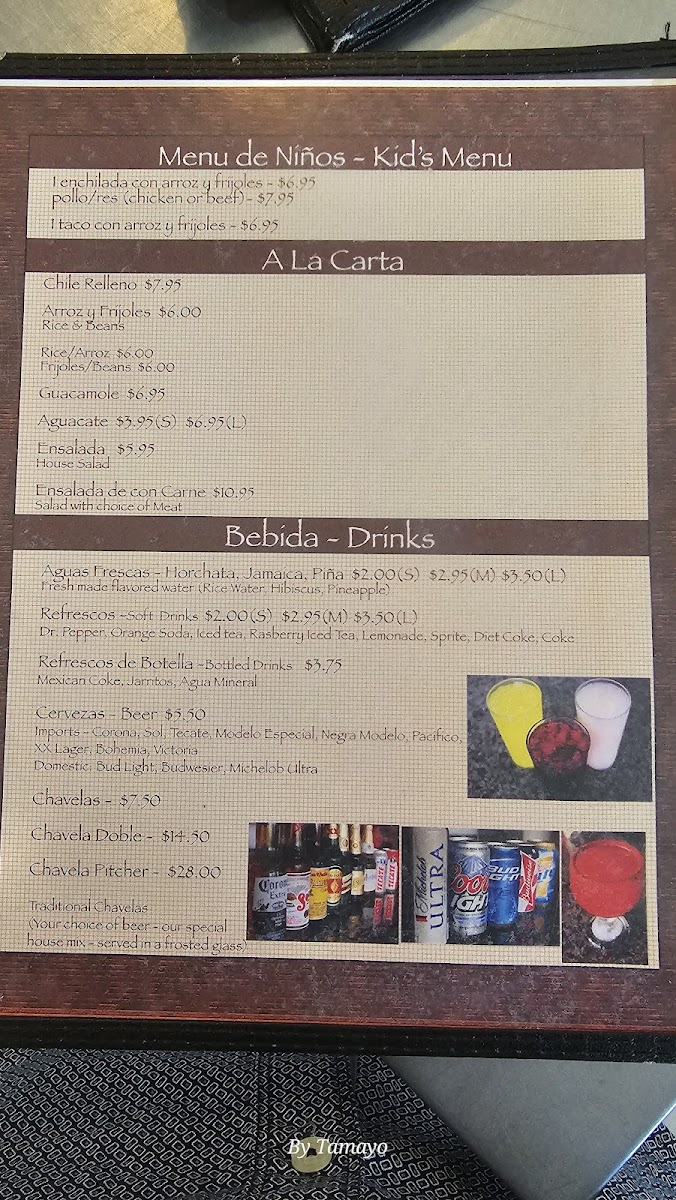 Menu de Niños - Kid's Menu
1 enchilada con arroz y frijoles - $6.95
pollo/res (chicken or beef) - $7.95
1 taco con arroz y frijoles - $6.95
A La Carta
Chile Relleno $7.95
Arroz y Frijoles $6.00
Rice & Beans
Rice/Arroz $6.00
Frijoles/Beans $6.00
Guacamole $6.95
Aguacate $3.95(S) $6.95(L)
Ensalada $5.95
House Salad
Ensalada de con Carne $10.95
Salad with choice of Meat
Bebida - Drinks
Aguas Frescas - Horchata, Jamaica, Piña $2.00(S) $2.95(M) $3.50(L)
Fresh made flavored water (Rice Water, Hibiscus, Pineapple)
Refrescos -Soft Drinks $2.00(S) $2.95(M) $3.50(L)
Dr. Pepper, Orange Soda, Iced tea, Rasberry Iced Tea, Lemonade, Sprite, Diet Coke, Coke
Refrescos de Botella -Bottled Drinks $3.75
Mexican Coke, Jarritos, Agua Mineral
Cervezas - Beer $5.50
Imports - Corona, Sol, Tecate, Modelo Especial, Negra Modelo, Pacifico,
XX Lager, Bohemia, Victoria
Domestic: Bud Light, Budwesier, Michelob Ultra
Chavelas - $7.50
Chavela Doble - $14.50
Chavela Pitcher - $28.00
Traditional Chavelas
(Your choice of beer - our special
house mix - served in a frosted glass)
Corona
Extra
Michelob
ULTRA
Coors
LIGHT
BUD
LIGHT
By Tamayo